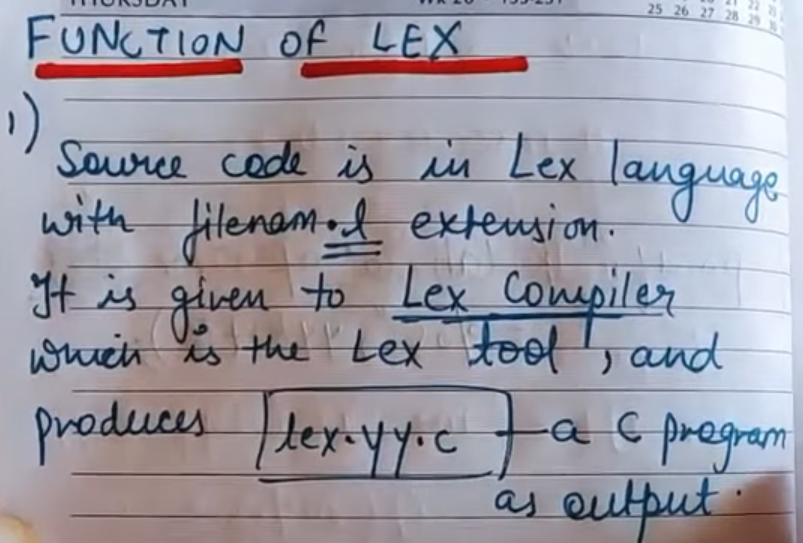 THURSDAY
25 26 27 28 29 30
FUNCTION OF LEX
1)
Source code is in Lex language
with filenam.l extension.
It is given to Lex Compiler
which is the Lex tool, and
produces lex.yy.c - a C program
as output.